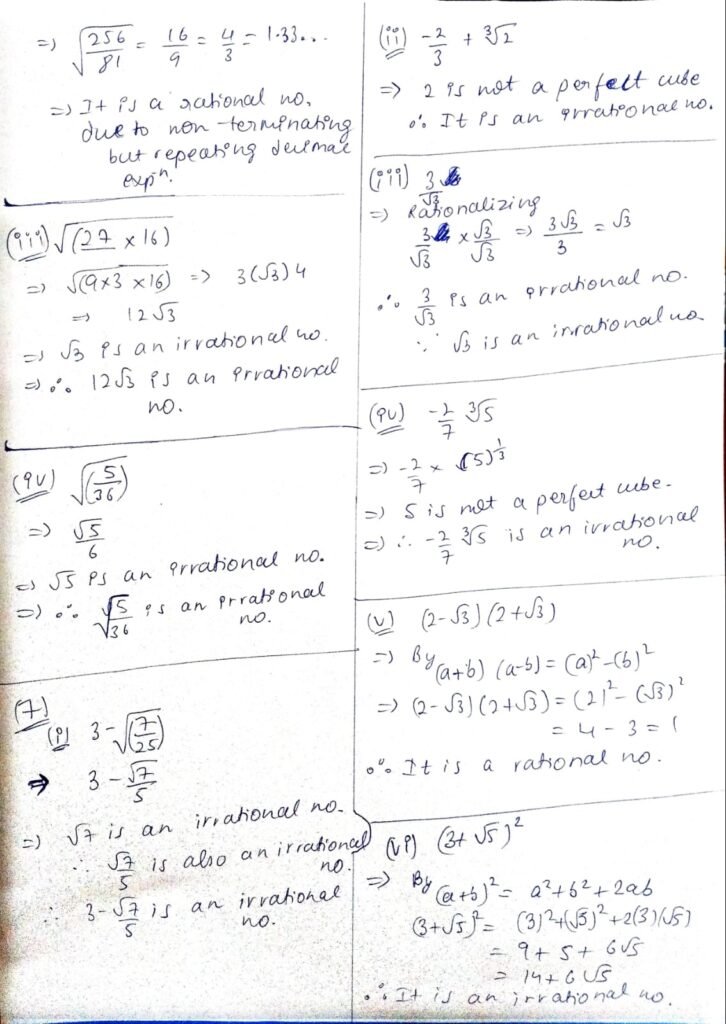 => √(256/81) = 16/9 = 4/3 = 1.33...
=> It is a rational no.
due to non-terminating
but repeating decimal
expⁿ.
(iii) √(27 × 16)
=> √(9×3 ×16) => 3(√3) 4
=> 12√3
=> √3 is an irrational no.
=> ∴ 12√3 is an irrational
no.
(iv) √(5/36)
=> √5/6
=> √5 is an irrational no.
=> ∴ √5/√36 is an irrational
no.
(7)
(i) 3-√(7/25)
=> 3 - √7/5
=> √7 is an irrational no.
∴ √7/5 is also an irrational
no.
∴ 3-√7/5 is an irrational
no.
(ii) -2/3 + ³√2
=> 2 is not a perfect cube
∴ It is an irrational no.
(iii) 3/√3
=> Rationalizing
3/√3 × √3/√3 => 3√3/3 = √3
∴ 3/√3 is an irrational no.
∵ √3 is an irrational no
(iv) -2/7 ³√5
=> -2/7 × (5)^1/3
=> 5 is not a perfect cube.
=> ∴ -2/7 ³√5 is an irrational
no.
(v) (2-√3) (2+√3)
=> By (a+b) (a-b) = (a)²-(b)²
=> (2-√3) (2+√3) = (2)² - (√3)²
= 4 - 3 = 1
∴ It is a rational no.
(vi) (3+√5)²
=> By (a+b)² = a²+b²+2ab
(3+√5)² = (3)²+(√5)²+2(3)(√5)
= 9+5+6√5
= 14+6√5
∴ It is an irrational no.